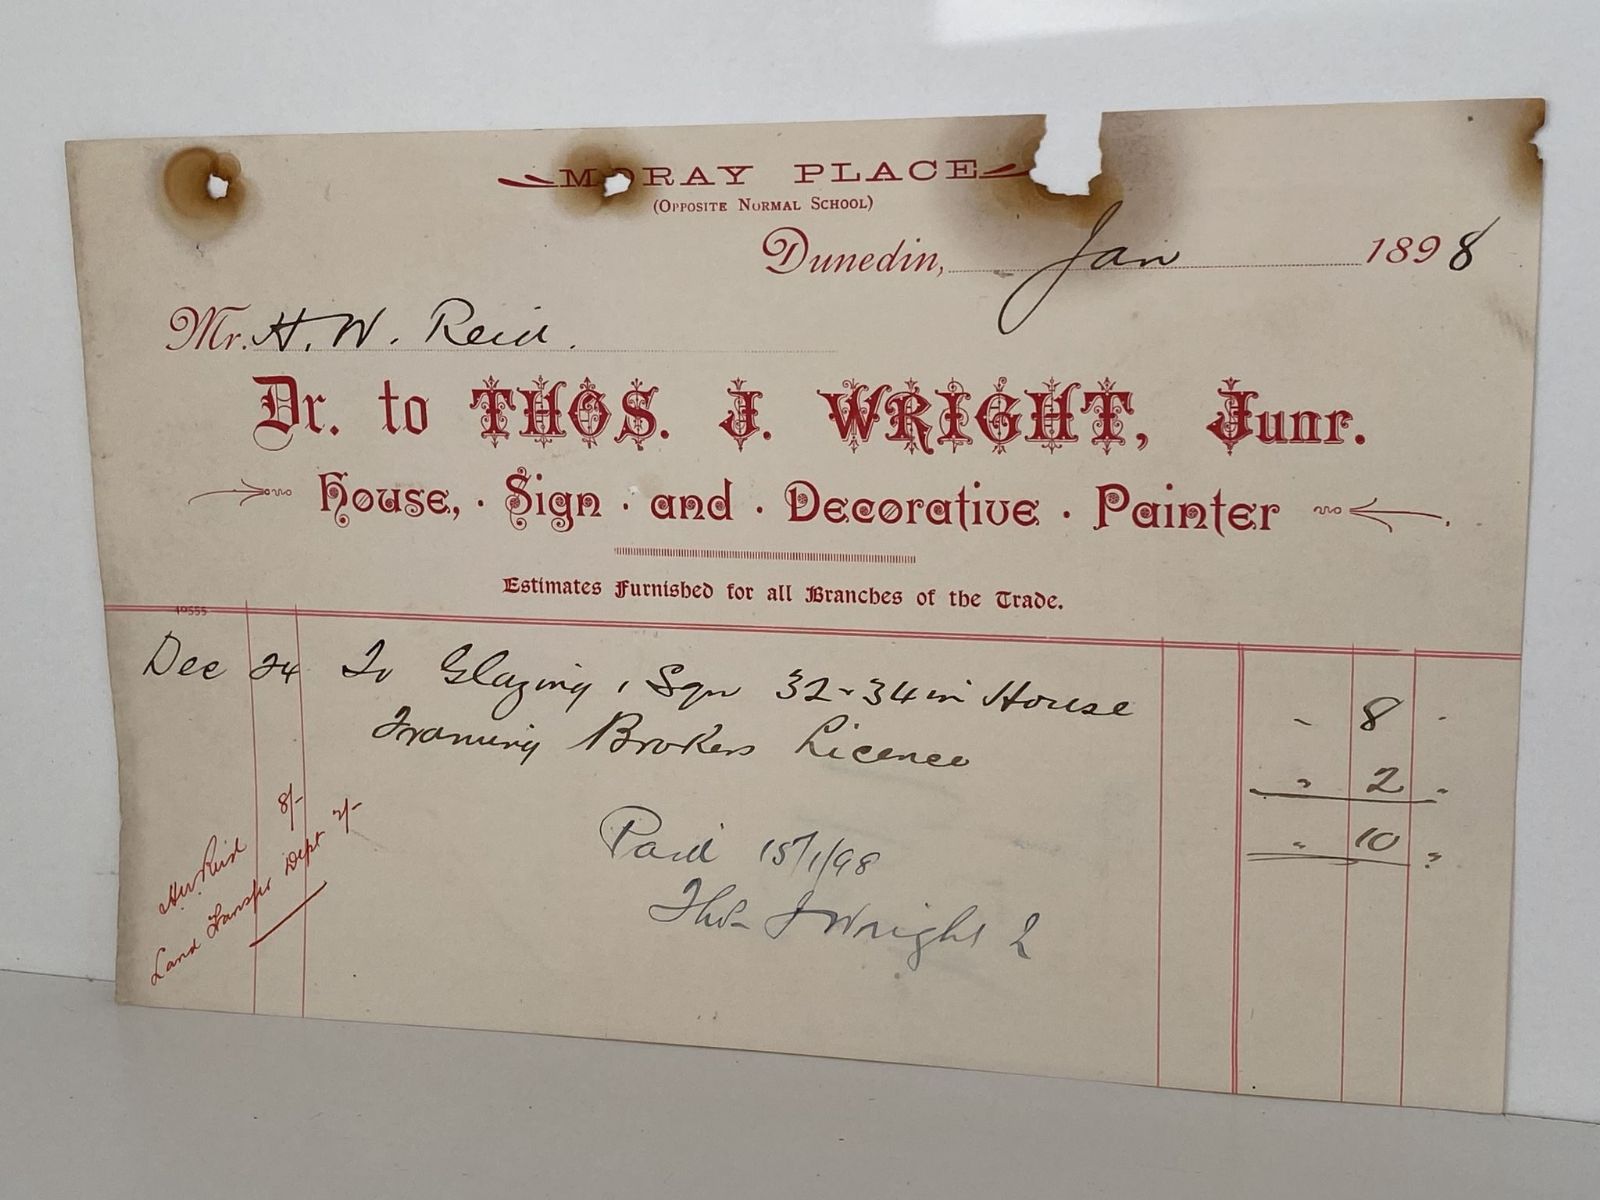 MORAY PLACE
(OPPOSITE NORMAL SCHOOL)
Dunedin, Jan 1898
Mr. H. W. Reid.
Dr. to THOS. J. WRIGHT, Junr.
House, · Sign · and · Decorative · Painter
Estimates Furnished for all Branches of the Trade.
40555
Dec 24 To Glazing 1 Sqr 32 x 34 in House - 8 -
Framing Brokers Licence " 2 "
" 10 "
HW Reid 8/-
Land Transfer Dept 2/-
Paid 15/1/98
Thos J Wright